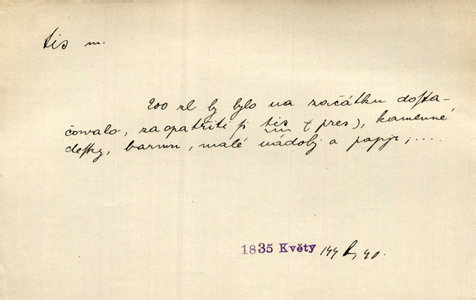 tis m.
200 zl by bylo na začátku dosta-
čowalo, zaopatřiti si tis (pres), kamenné
desky, barwu, malé nádobj a papjr, ...
1835 Květy 144 40.